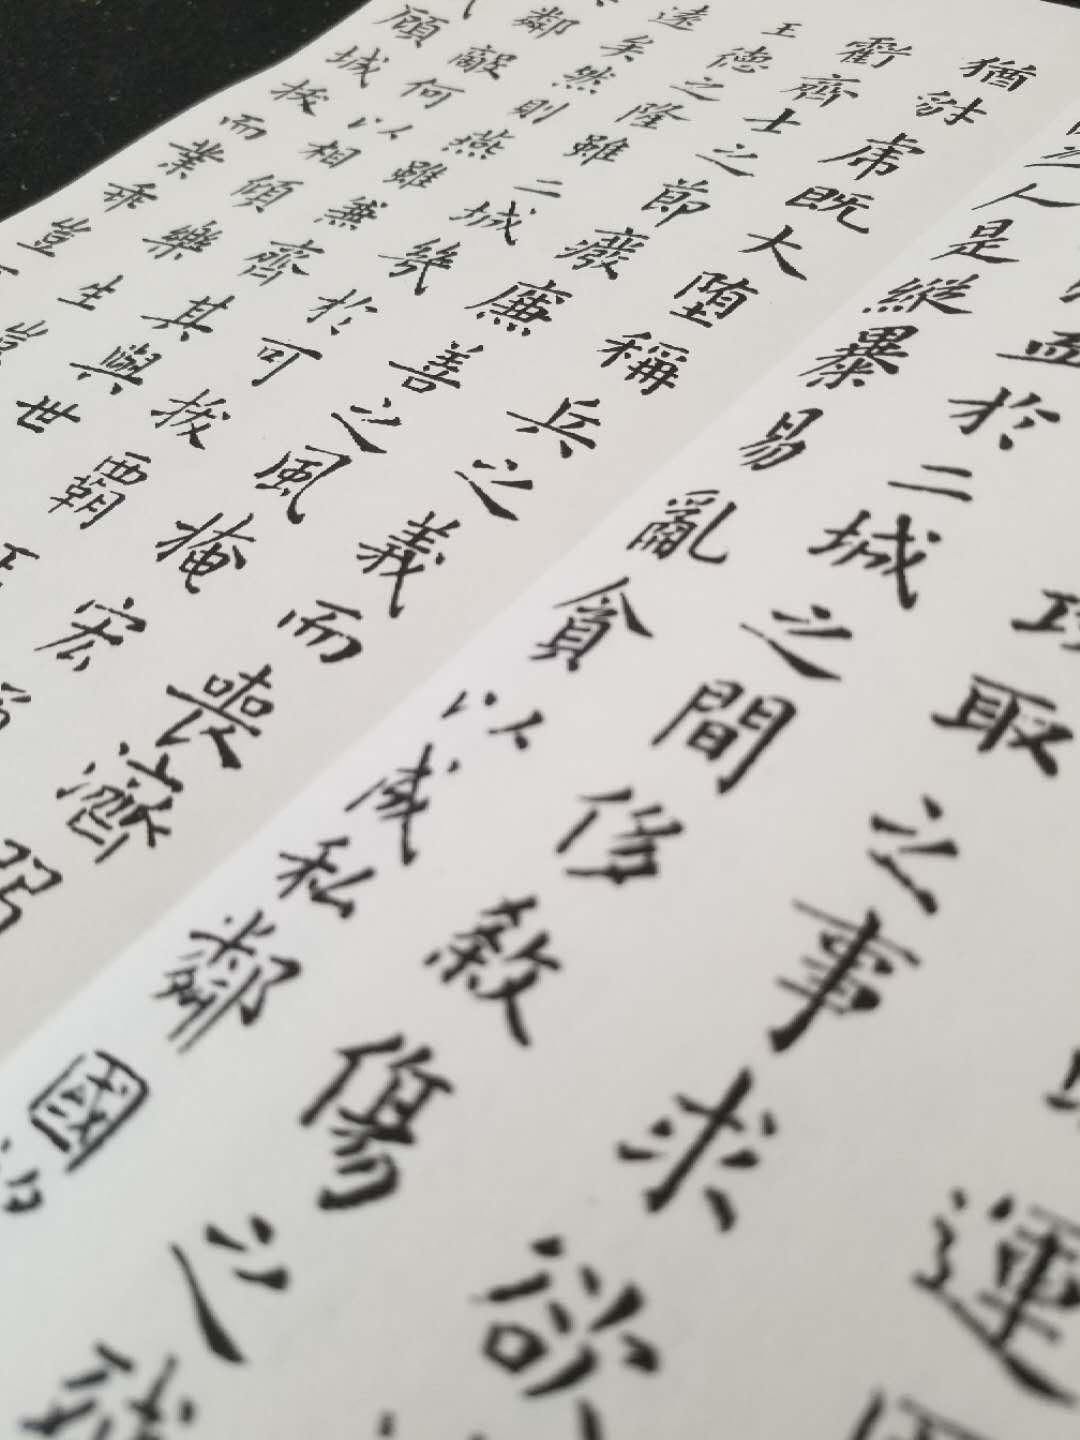 運
取之事求欲
於二城之間侈殺傷之殘
人是縱暴易亂貪以成私鄰國
猶豺虎既大墮稱兵之義而喪濟弱
虧齊士之節廢廉善之風掩宏
王德之隆雖二城幾於可拔霸王
遠矣然則燕雖兼齊其與世
鄰敵何以相傾樂生豈
顧城拔而業乖豈